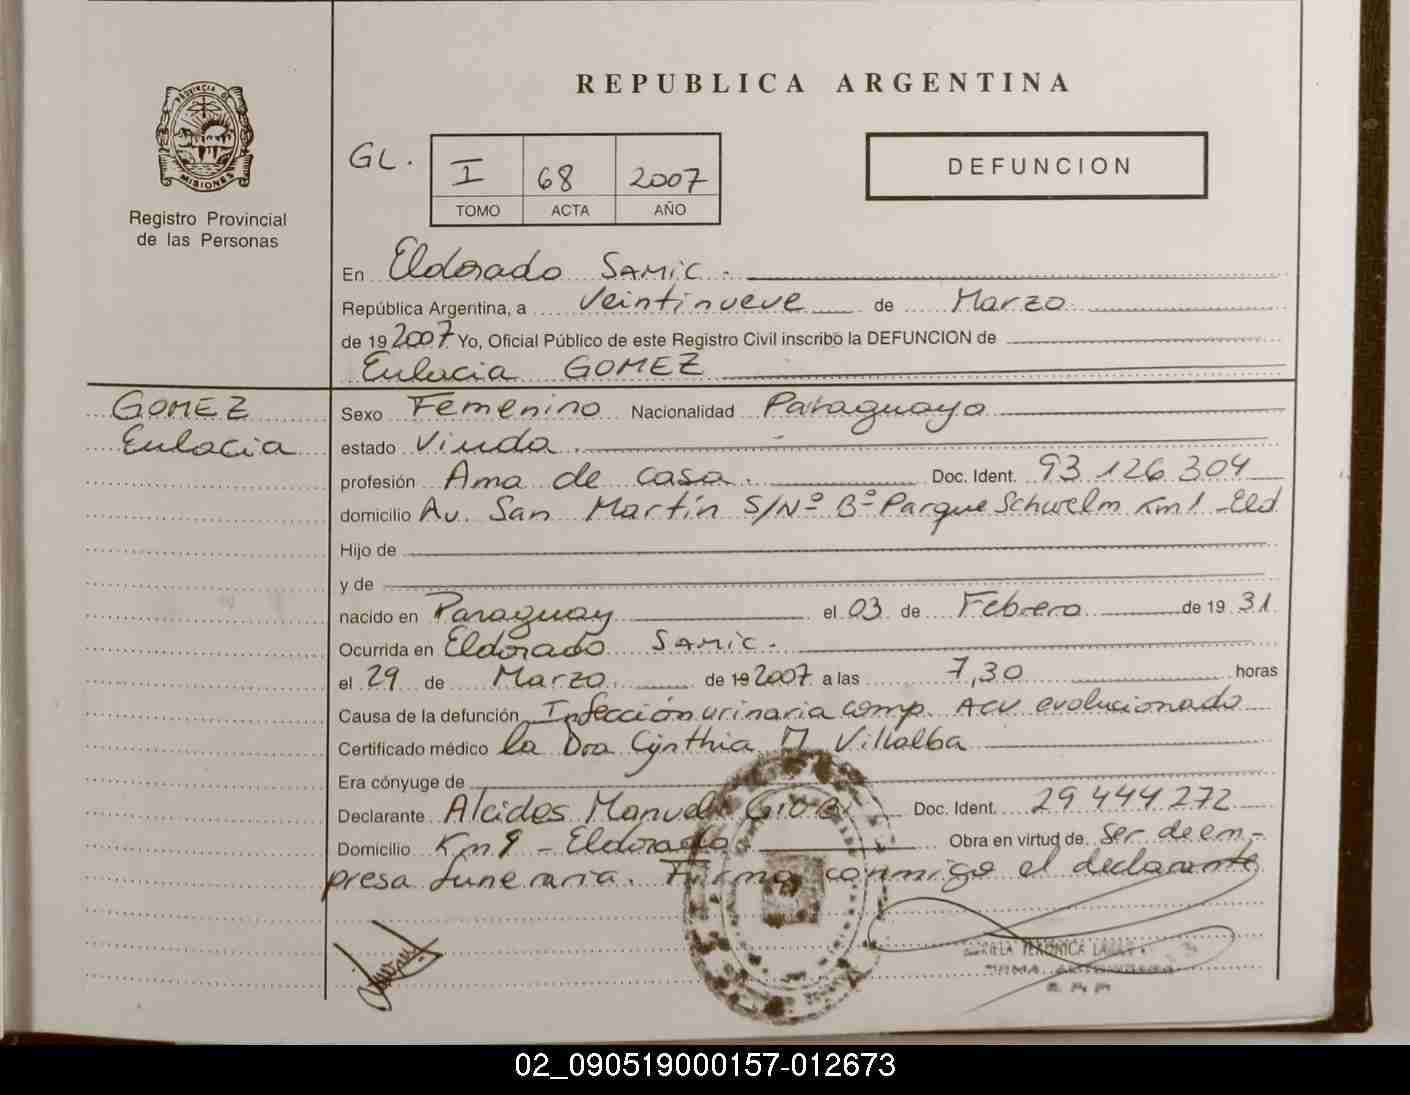 REPUBLICA ARGENTINA
PROVINCIA DE
MISIONES
Registro Provincial
de las Personas
GL. I 68 2007
TOMO ACTA AÑO
DEFUNCION
En Eldorado SAMIC.
República Argentina, a Veintinueve de Marzo
de 19 2007 Yo, Oficial Público de este Registro Civil inscribo la DEFUNCION de
Eulacia GOMEZ
GOMEZ
Eulacia
Sexo Femenino Nacionalidad Paraguaya
estado Viuda.
profesión Ama de casa. Doc. Ident. 93.126.304
domicilio Av. San Martín S/Nº Bº Parque Schwelm Km 1 - Eld
Hijo de
y de
nacido en Paraguay el 03 de Febrero de 19 31
Ocurrida en Eldorado SAMIC.
el 29 de Marzo. de 19 2007 a las 7,30 horas
Causa de la defunción Infección urinaria comp. ACV evolucionado
Certificado médico la Dra Cynthia M Villalba
Era cónyuge de
Declarante Alcides Manuel Doc. Ident. 29.444.272
Domicilio Km 9 - Eldorado. Obra en virtud de ser de em-
presa funeraria. Firma conmigo el declarante
VERONICA
02_090519000157-012673